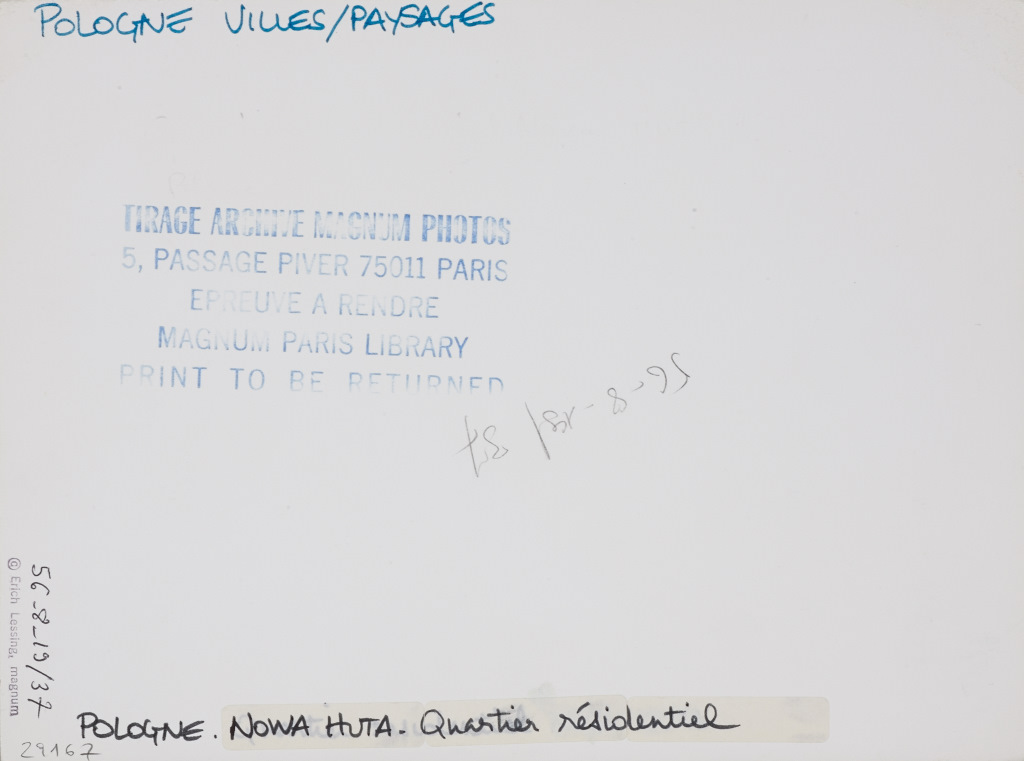 POLOGNE VILLES/PAYSAGES
TIRAGE ARCHIVE MAGNUM PHOTOS
5, PASSAGE PIVER 75011 PARIS
EPREUVE A RENDRE
MAGNUM PARIS LIBRARY
PRINT TO BE RETURNED
56-8-19/37
© Erich Lessing, magnum
POLOGNE. NOWA HUTA. Quartier résidentiel
29167